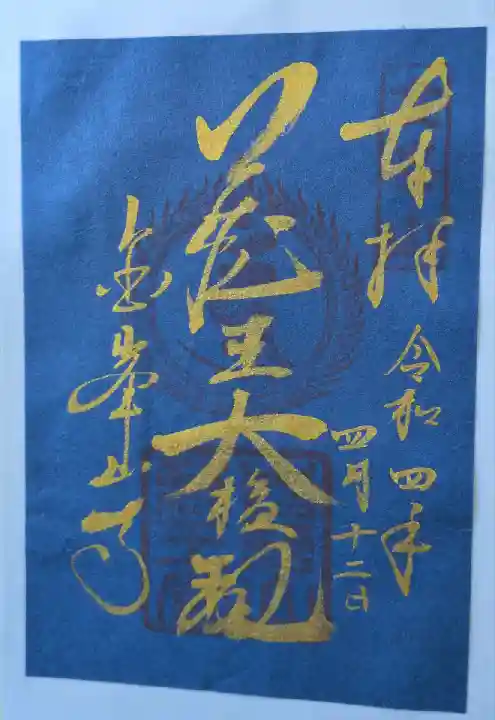 奉拝
令和四年
四月十二日
蔵王大権現
金峯山寺